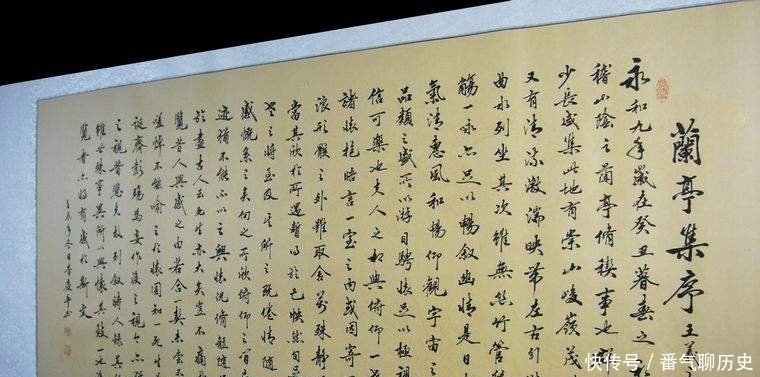 蘭亭集序 王羲
永和九年歲在癸丑暮春之
稽山陰之蘭亭脩稧事也
少長咸集此地有崇山峻嶺茂
又有清流激湍映帶左右引
曲水列坐其次雖無絲竹管
觴一詠亦足以暢敘幽情是日
氣清惠風和暢仰觀宇宙之
品類之盛所以遊目騁懷足以極視
信可樂也夫人之相與俯仰一
諸懷抱晤言一室之內或因寄
浪形骸之外雖取舍萬殊靜
當其欣於所遇暫得於己怏然自
老之將至及其所之既倦情隨
感慨系之矣向之所欣俯仰之間
迹猶不能不以之興懷況脩短隨
於盡古人云死生亦大矣豈不痛
覽昔人興感之由若合一契未嘗不
嗟悼不能喻之於懷固知一死生
誕齊彭殤為妄作後之視今亦
之視昔悲夫故列敘時人錄其
雖世殊事異所以興懷其致一也
覽者亦將有感於斯文
快传号 / 番气聊历史